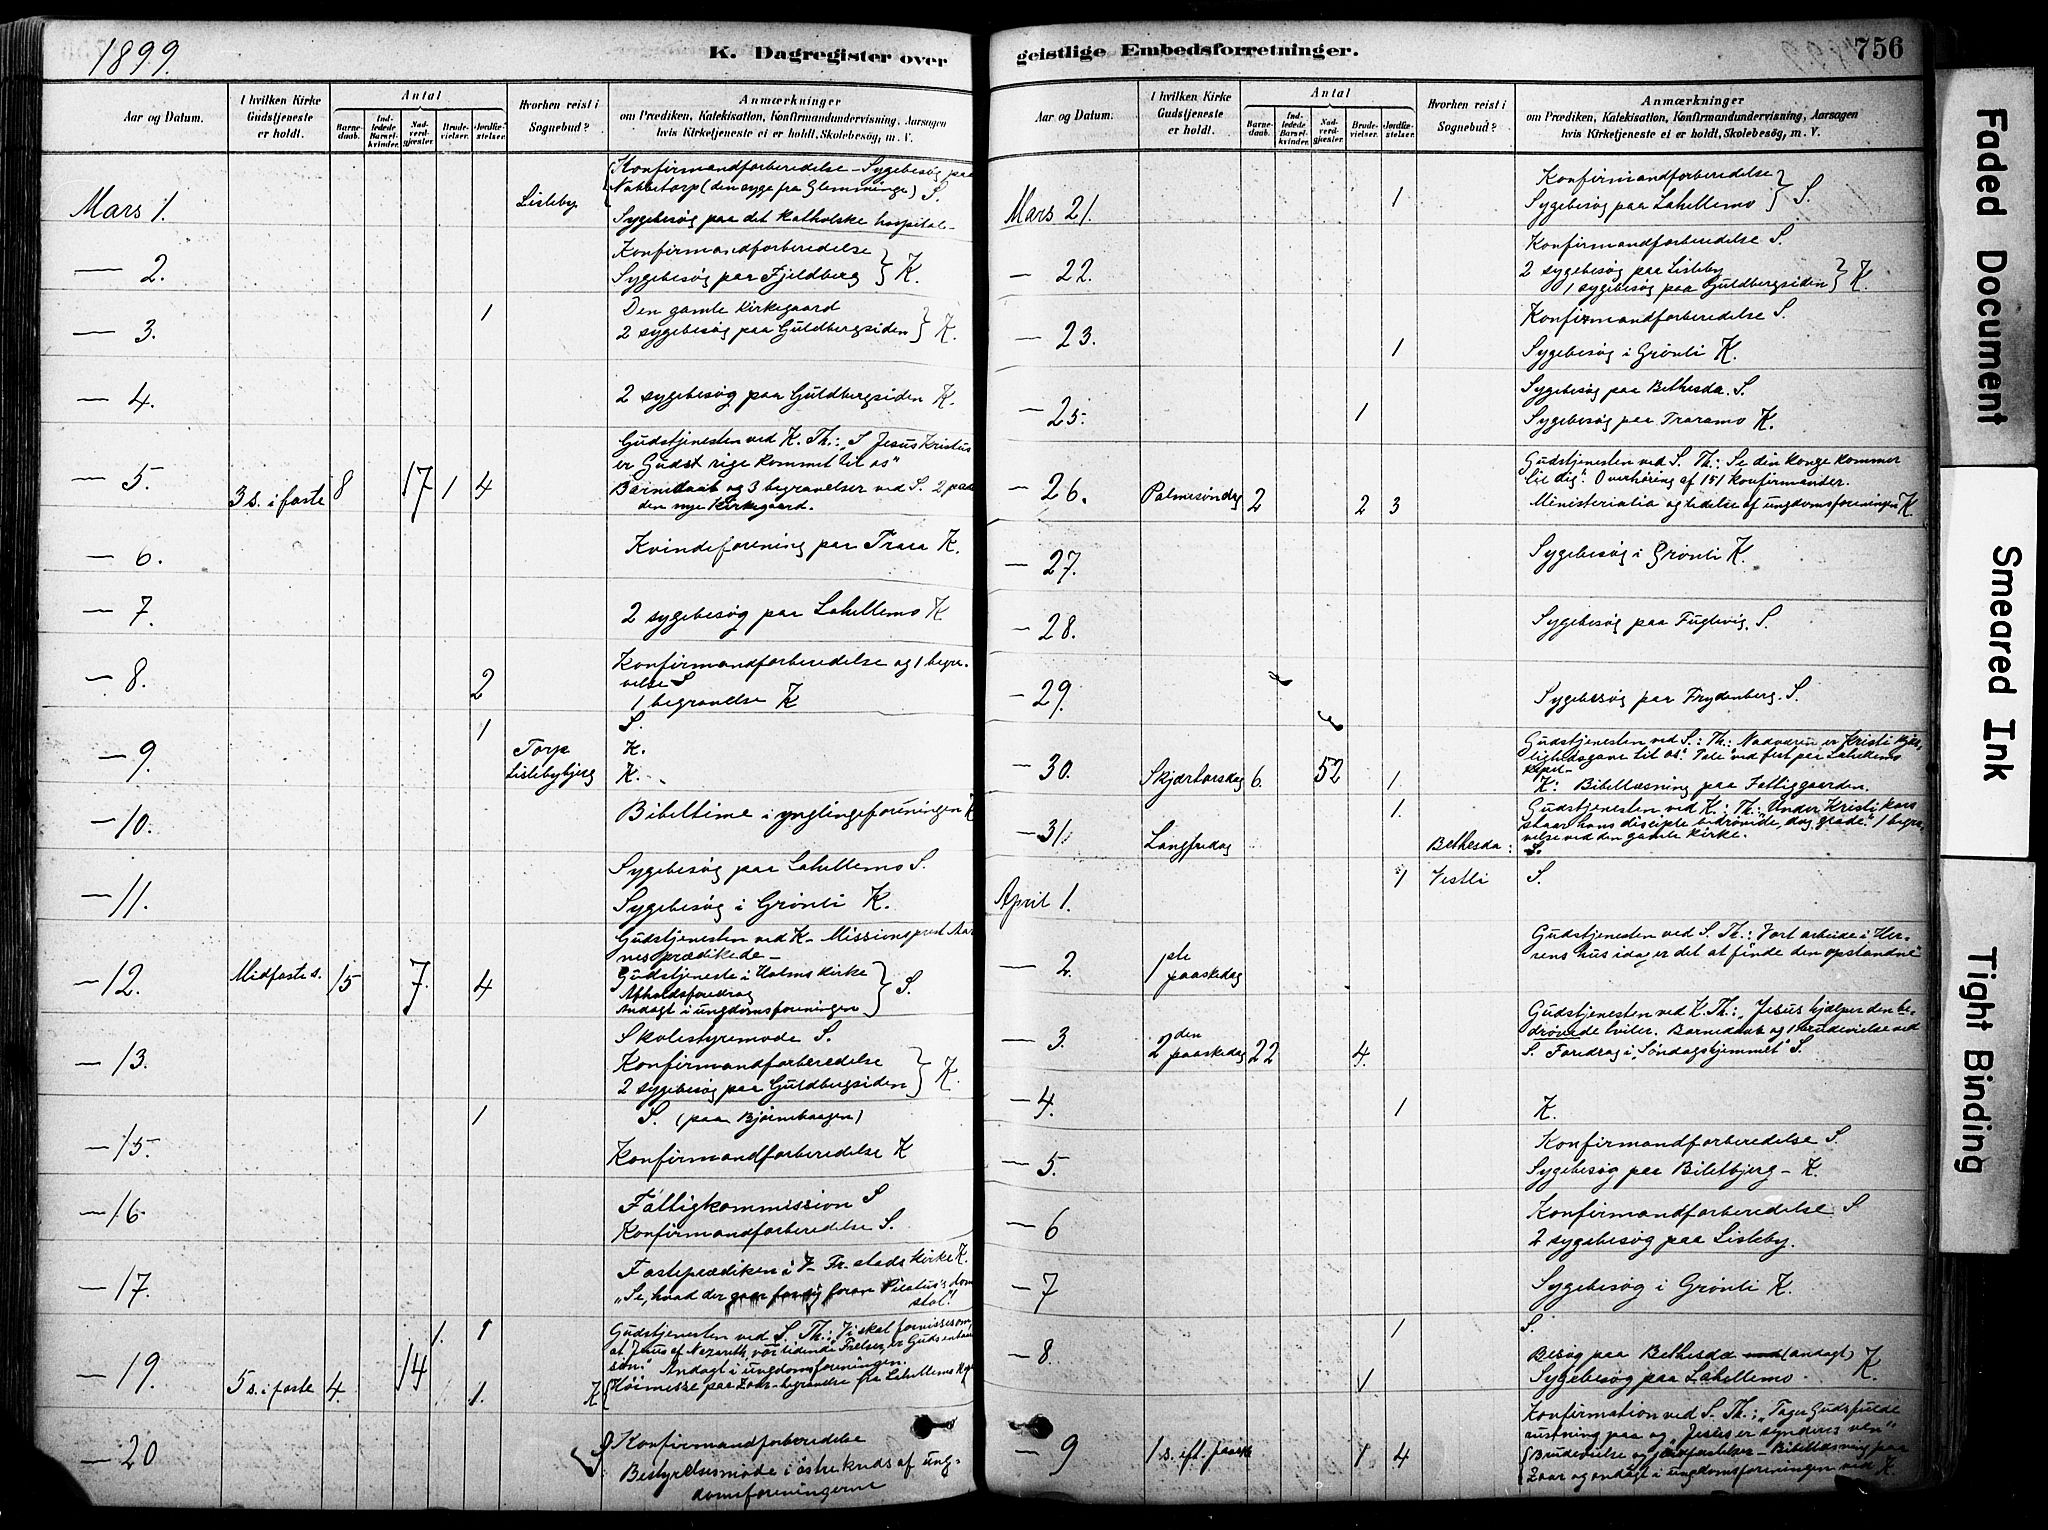 1899.
K. Dagregister over
Aar og Datum.
I hvilken Kirke Gudstjeneste er holdt.
Antal
Barnedaab.
Indledede Barselkvinder.
Nadverdgjæster.
Brudevielser.
Jordfæstelser.
Hvorhen reist i Sognebud?
Anmærkninger
om Prædiken, Katekisation, Konfirmandundervisning, Aarsagen
hvis Kirketjeneste ei er holdt, Skolebesøg, m. V.
Mars 1.
Lisleby
Konfirmandforberedelse - Sygebesøg paa
Nabbetorp (den syge fra Glemminge) S.
Sygebesøg paa det katholske hospital-
— 2.
Konfirmandforberedelse
Sygebesøg paa Fjeldberg } K.
— 3.
1
Den gamle Kirkegaard
2 sygebesøg paa Guldbergsiden } K.
— 4.
2 sygebesøg paa Guldbergsiden K.
— 5.
3 s. i faste 8 17 1 4
Gudstjenesten ved K. Th.: "I Jesus Kristus
er Guds rige kommet til os"
Barnedaab og 3 begravelser ved S. 2 paa
den nye Kirkegaard.
— 6.
Kvindeforening paa Trara K.
— 7.
2 sygebesøg paa Lahellemo K
— 8.
2
Konfirmandforberedelse og 1 begra-
velse S
1 begravelse K
— 9.
1
S.
Torp K.
Lislebybjerg K.
— 10.
Bibeltime i ynglingeforeningen K
— 11.
Sygebesøg paa Lahellemo S.
Sygebesøg i Grønli K.
— 12.
Midfaste s. 15 7. 4
Gudstjenesten ved K - Missionsprest Aar
nes prædikede -
Gudstjeneste i Holms kirke
Afholdsforedrag
Andagt i ungdomsforeningen } S.
— 13.
Skolestyremøde S.
Konfirmandforberedelse
2 sygebesøg paa Guldbergsiden } K.
— 15.
1
S. (paa Bjørnehaugen)
Konfirmandforberedelse K
— 16
Fattigkommission S
Konfirmandforberedelse S.
— 17.
Fasteprædiken i V. Fr.stads kirke K.
"Se, hvad der gaar for sig foran Pilatus's dom
stol."
— 19.
5 s. i faste 4. 14 1. 1
1.
Gudstjenesten ved S. Th.: Vi skal forvisses om,
at Jesus af Nazareth, vor lidende Frelser, er Guds enbaa
søn." Andagt i ungdomsforeningen.
K { Høimesse paa Zoar - begravelse fra Lahellemo
— 20
S { Konfirmandforberedelse
Bestyrelsesmøde i østre kreds af ung-
domsforeningerne
geistlige Embedsforretninger.
756
Aar og Datum.
I hvilken Kirke Gudstjeneste er holdt.
Antal
Barnedaab.
Indledede Barselkvinder.
Nadverdgjæster.
Brudevielser.
Jordfæstelser.
Hvorhen reist i Sognebud?
Anmærkninger
om Prædiken, Katekisation, Konfirmandundervisning, Aarsagen
hvis Kirketjeneste ei er holdt, Skolebesøg, m. V.
Mars 21.
1
Konfirmandforberedelse
Sygebesøg paa Lahellemo } S.
— 22.
Konfirmandforberedelse S.
2 sygebesøg paa Lisleby
1 sygebesøg paa Guldbergsiden } K.
— 23.
1
Konfirmandforberedelse S.
Sygebesøg i Grønli K.
— 25.
1
Sygebesøg paa Bethesda. S.
Sygebesøg paa Traramo K.
— 26.
Palmesøndag 2 2 3
Gudstjenesten ved S. Th.: Se din konge kommer
til dig". Overhøring af 151 konfirmander.
Ministerialia og ledelse af ungdomsforeningen K.
— 27.
Sygebesøg i Grønli K.
— 28.
Sygebesøg paa Fuglevig. S.
— 29.
Sygebesøg paa Frydenberg. S.
— 30.
Skjærtorsdag 6. 52 1.
Gudstjenesten ved S.: Th: Nadveren er Kristi kjær
lighedsgave til os". Tale ved fest paa Lahellemo
K: Bibellæsning paa Fattiggaarden.
— 31.
Langfredag 1.
Bethesda:
Gudstjenesten ved K.: Th: Under Kristi kors
staar hans disciple bedrøvede, dog glade." 1 begra-
velse ved den gamle kirke.
S.
April 1.
1 Vestli S.
— 2.
1ste paaskedag
Gudstjenesten ved S. Th.: Vort arbeide i Her-
rens hus idag er det at finde den opstandne"
— 3.
2den paaskedag 22 4.
Gudstjenesten ved K. Th.: "Jesus hjælper den be-
drøvede tviler. Barnedaab og 1 brudevielse ved
S. Foredrag i "Søndagshjemmet" S.
— 4.
1 K.
— 5.
Konfirmandforberedelse S.
Sygebesøg paa Biletbjerg - K.
— 6
Konfirmandforberedelse. S
2 sygebesøg paa Lisleby.
— 7
Sygebesøg i Grønli K.
— 8.
1
1
S.
Besøg paa Bethesda (andagt)
Sygebesøg paa Lahellemo. K.
— 9
1 s. eft. paaske 1 4
Konfirmation ved S. Th.: "Tager Guds fulde
rustning paa og "Jesus er synderes ven"
Brudevielse og jordfæstelser - Bibellæsning paa
Zoar og andagt i ungdomsforeningen ved K
Faded Document
Smeared Ink
Tight Binding